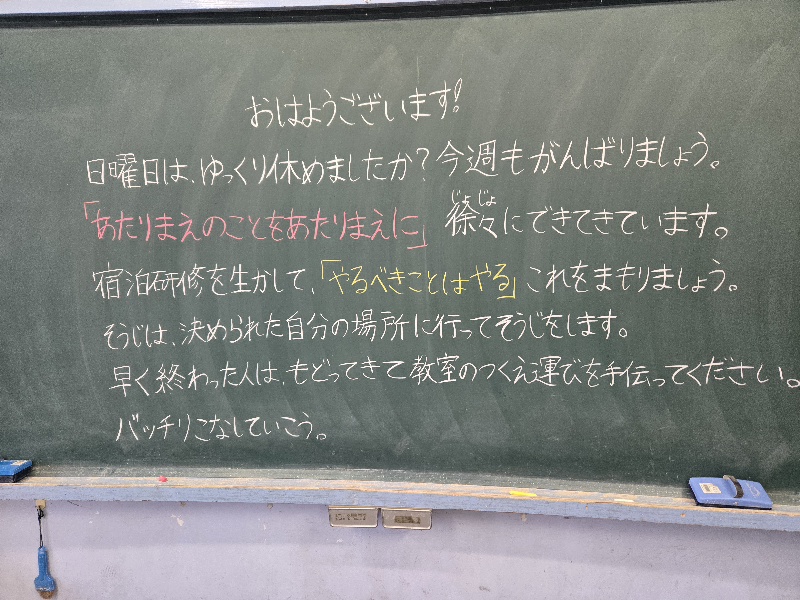 おはようございます!
日曜日は、ゆっくり休めましたか?今週もがんばりましょう。
「あたりまえのことをあたりまえに」徐々にできてきています。
じょじょ
宿泊研修を生かして、「やるべきことはやる」これをまもりましょう。
そうじは、決められた自分の場所に行ってそうじをします。
早く終わった人は、もどってきて教室のつくえ運びを手伝ってください。
バッチリこなしていこう。